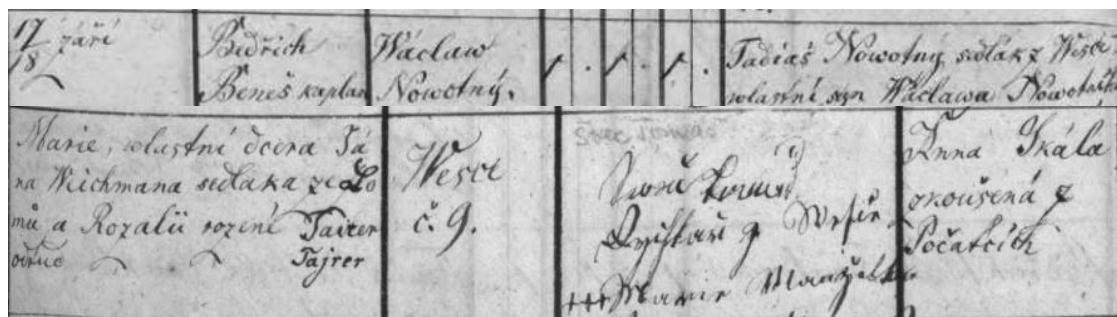 17/18 září
Bedřich
Beneš kaplan
Wáclaw
Nowotný.
Tadiáš Nowotný sedlák z Wesce
wlastní syn Wáclawa Nowotného
Marie, wlastní dcera Já
na Weichmana sedláka ze
mů a Rozalii rození Tairer
Tajrer
Wesce
č. 9.
z Wesce
+++ Marie Manželka
Anna Skála
zkoušená z
Počátcích